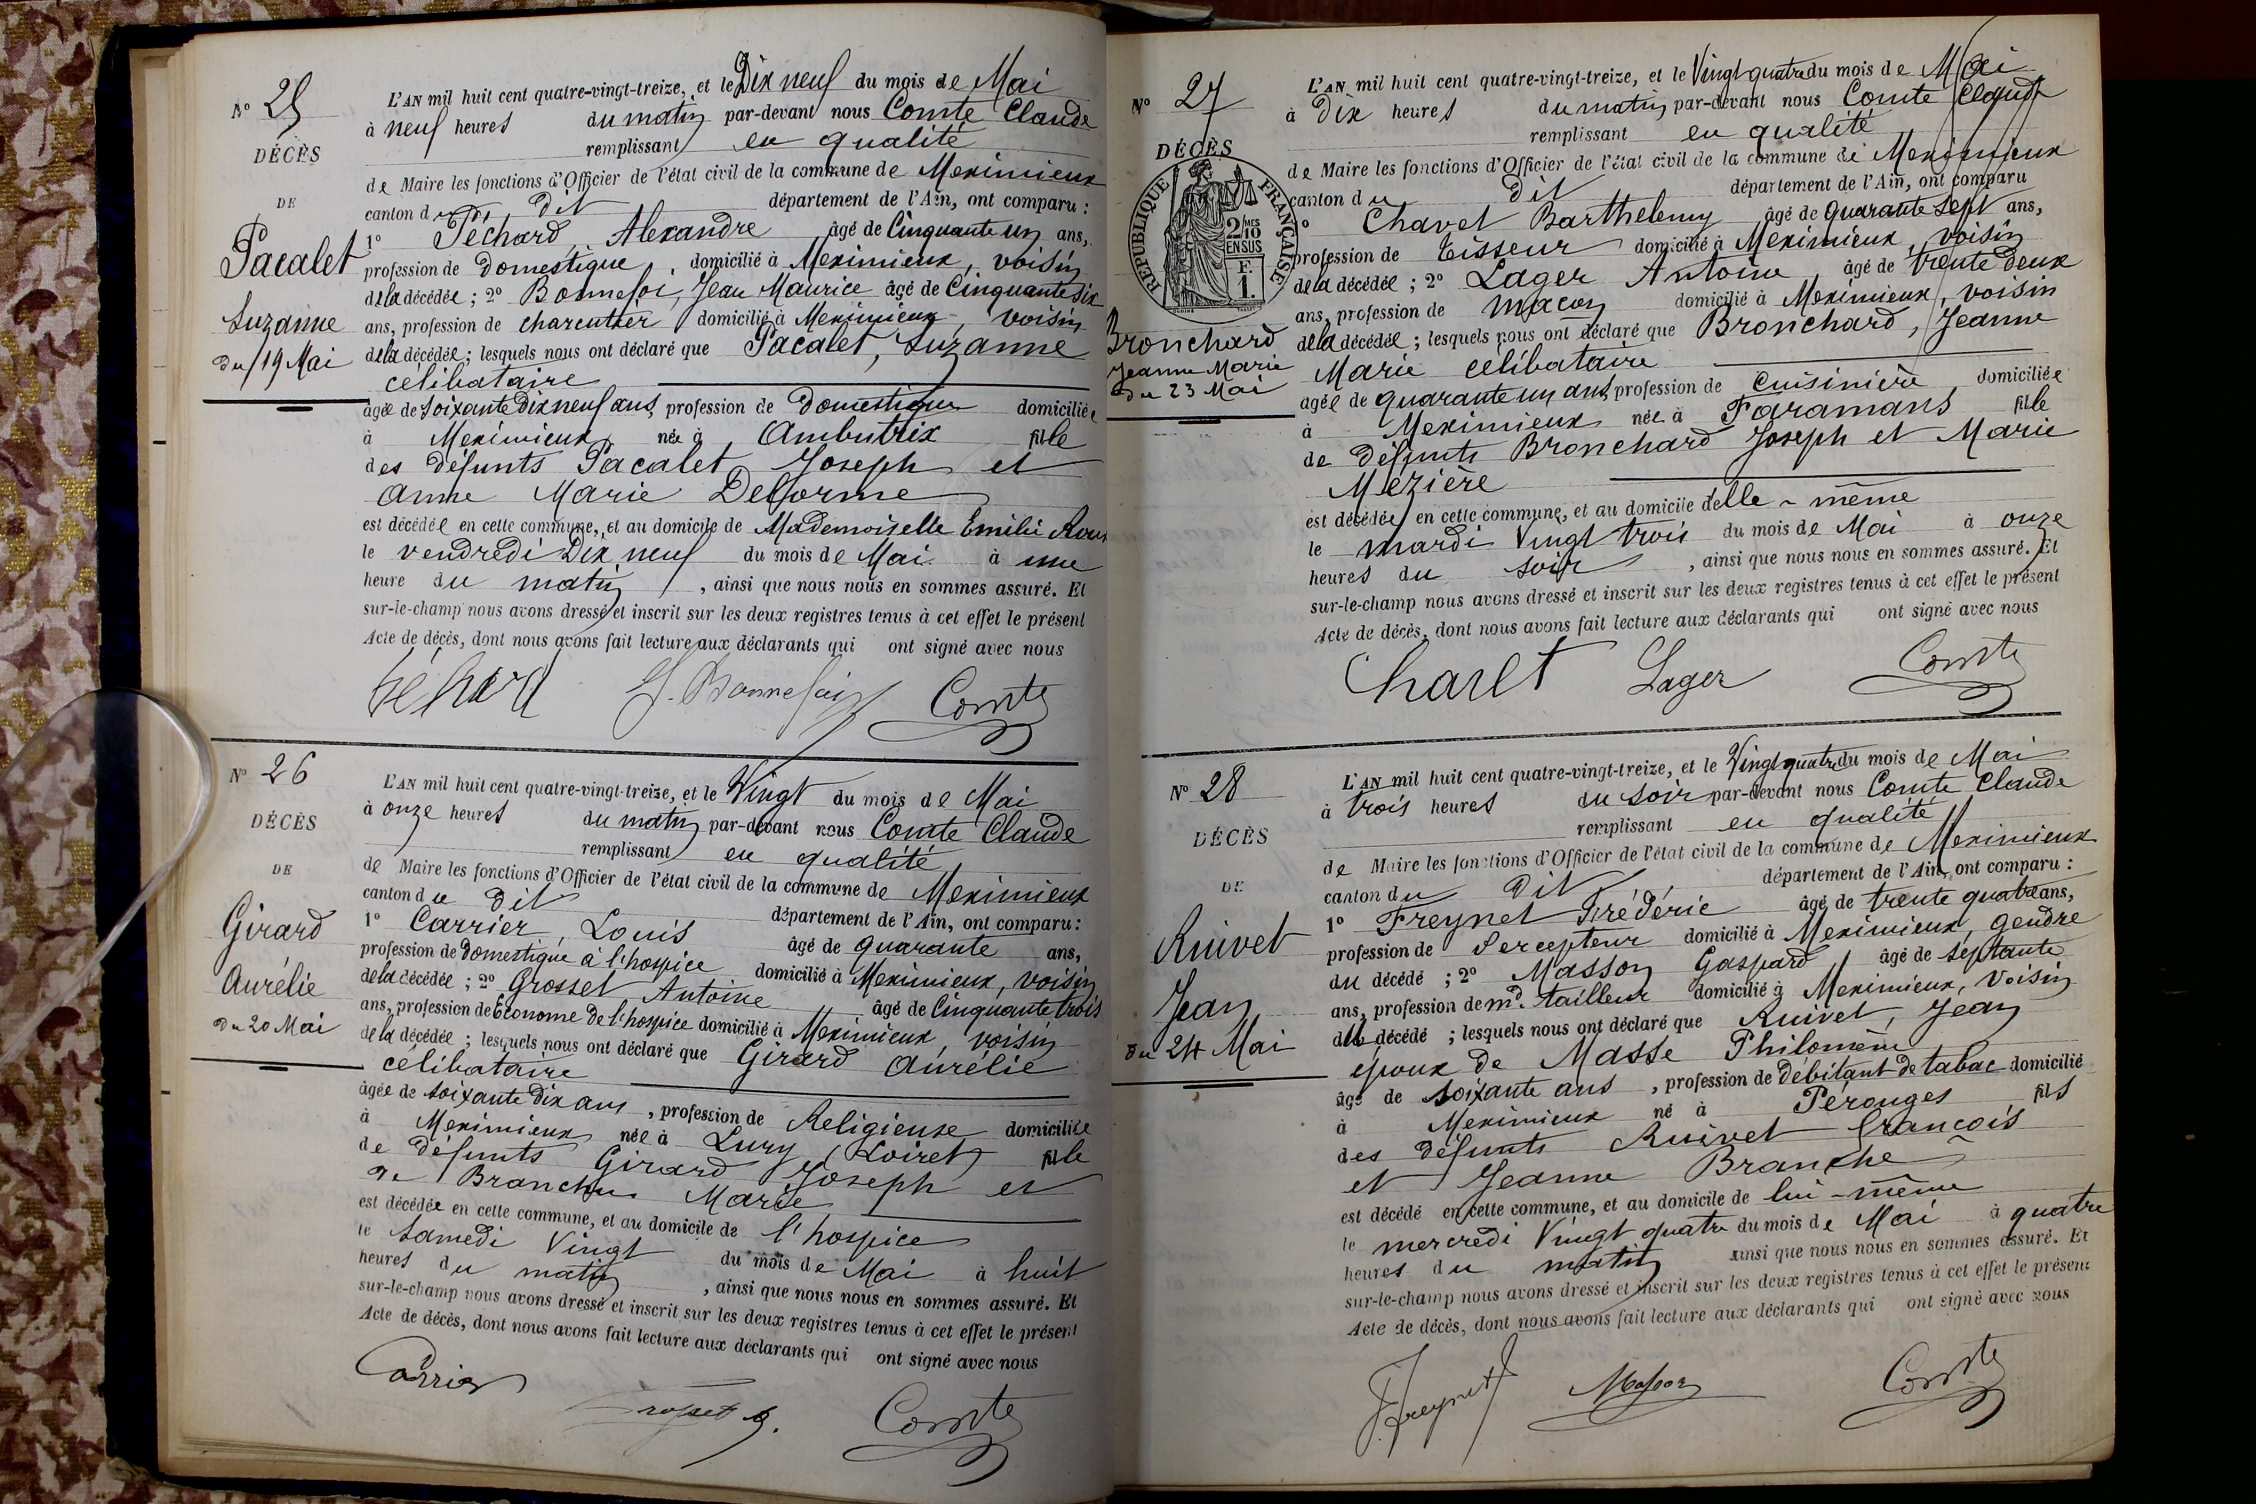 N° 25
DÉCÈS
DE
Pacalet
Suzanne
du 19 Mai
L'AN mil huit cent quatre-vingt-treize, et le Dix neuf du mois de Mai
à neuf heures du matin par-devant nous Comte Claude
remplissant en qualité
de Maire les fonctions d'Officier de l'état civil de la commune de Meximieux
canton du dit département de l'Ain, ont comparu :
1° Péchard, Alexandre âgé de Cinquante un ans,
profession de Domestique, domicilié à Meximieux, voisin
de la décédée ; 2° Bonnefoi, Jean Maurice âgé de Cinquante six
ans, profession de charcutier domicilié à Meximieux, voisin
de la décédée ; lesquels nous ont déclaré que Pacalet, Suzanne
célibataire
âgée de soixante Dix neuf ans, profession de Domestique domiciliée
à Meximieux née à Ambutrix fille
des défunts Pacalet Joseph et
Anne Marie Delorme
est décédée en cette commune, et au domicile de Mademoiselle Emélie Roux
le vendredi Dix neuf du mois de Mai à une
heure du matin, ainsi que nous nous en sommes assuré. Et
sur-le-champ nous avons dressé et inscrit sur les deux registres tenus à cet effet le présent
Acte de décès, dont nous avons fait lecture aux déclarants qui ont signé avec nous
Péchard Bonnefoi Comte
N° 26
DÉCÈS
DE
Girard
Aurélie
du 20 Mai
L'AN mil huit cent quatre-vingt-treize, et le Vingt du mois de Mai
à onze heures du matin par-devant nous Comte Claude
remplissant en qualité
de Maire les fonctions d'Officier de l'état civil de la commune de Meximieux
canton du dit département de l'Ain, ont comparu :
1° Carrier, Louis âgé de quarante ans,
profession de Domestique à l'hospice domicilié à Meximieux, voisin
de la décédée ; 2° Grosset Antoine âgé de Cinquante trois
ans, profession de Econome de l'hospice domicilié à Meximieux, voisin
de la décédée ; lesquels nous ont déclaré que Girard Aurélie
célibataire
âgée de soixante dix ans, profession de Religieuse domiciliée
à Meximieux née à Lury (Loiret) fille
de défunts Girard Joseph et
de Branchu Marie
est décédée en cette commune, et au domicile de l'hospice
le samedi Vingt du mois de Mai à huit
heures du matin, ainsi que nous nous en sommes assuré. Et
sur-le-champ nous avons dressé et inscrit sur les deux registres tenus à cet effet le présent
Acte de décès, dont nous avons fait lecture aux déclarants qui ont signé avec nous
Carrier
Grosset Comte
N° 27
DÉCÈS
RÉPUBLIQUE FRANÇAISE
2/10 MES
EN SUS
F.
1.
Bronchard
Jeanne Marie
du 23 Mai
L'AN mil huit cent quatre-vingt-treize, et le Vingt quatre du mois de Mai
à Dix heures du matin par-devant nous Comte Claude
remplissant en qualité
de Maire les fonctions d'Officier de l'état civil de la commune de Meximieux
canton du dit département de l'Ain, ont comparu
1° Chavet Barthelemy âgé de quarante sept ans,
profession de Tisseur domicilié à Meximieux, voisin
de la décédée ; 2° Lager Antoine, âgé de trente deux
ans, profession de Maçon domicilié à Meximieux, voisin
de la décédée ; lesquels nous ont déclaré que Bronchard, Jeanne
Marie célibataire
âgée de quarante un ans, profession de Cuisinière, domiciliée
à Meximieux née à Faramans fille
de défunts Bronchard Joseph et Marie
Mezière
est décédée en cette commune, et au domicile d'elle-même
le mardi Vingt trois du mois de Mai à onze
heures du soir, ainsi que nous nous en sommes assuré. Et
sur-le-champ nous avons dressé et inscrit sur les deux registres tenus à cet effet le présent
Acte de décès, dont nous avons fait lecture aux déclarants qui ont signé avec nous
Chavet Lager Comte
N° 28
DÉCÈS
DE
Ruivet
Jean
du 24 Mai
L'AN mil huit cent quatre-vingt-treize, et le Vingt quatre du mois de Mai
à trois heures du soir par-devant nous Comte Claude
remplissant en qualité
de Maire les fonctions d'Officier de l'état civil de la commune de Meximieux
canton du dit département de l'Ain, ont comparu :
1° Freynet Frédéric âgé de trente quatre ans,
profession de Percepteur domicilié à Meximieux, gendre
du décédé ; 2° Masson Gaspard, âgé de septante
ans, profession de md. tailleur domicilié à Meximieux, Voisin
du décédé ; lesquels nous ont déclaré que Ruivet, Jean
époux de Masse Philomène
âgé de soixante ans, profession de Débitant de tabac domicilié
à Meximieux né à Perouges fils
des défunts Ruivet François
et Jeanne Branche
est décédé en cette commune, et au domicile de lui-même
le mercredi Vingt quatre du mois de Mai à quatre
heures du matin ainsi que nous nous en sommes assuré. Et
sur-le-champ nous avons dressé et inscrit sur les deux registres tenus à cet effet le présent
Acte de décès, dont nous avons fait lecture aux déclarants qui ont signé avec nous
Freynet Masson Comte